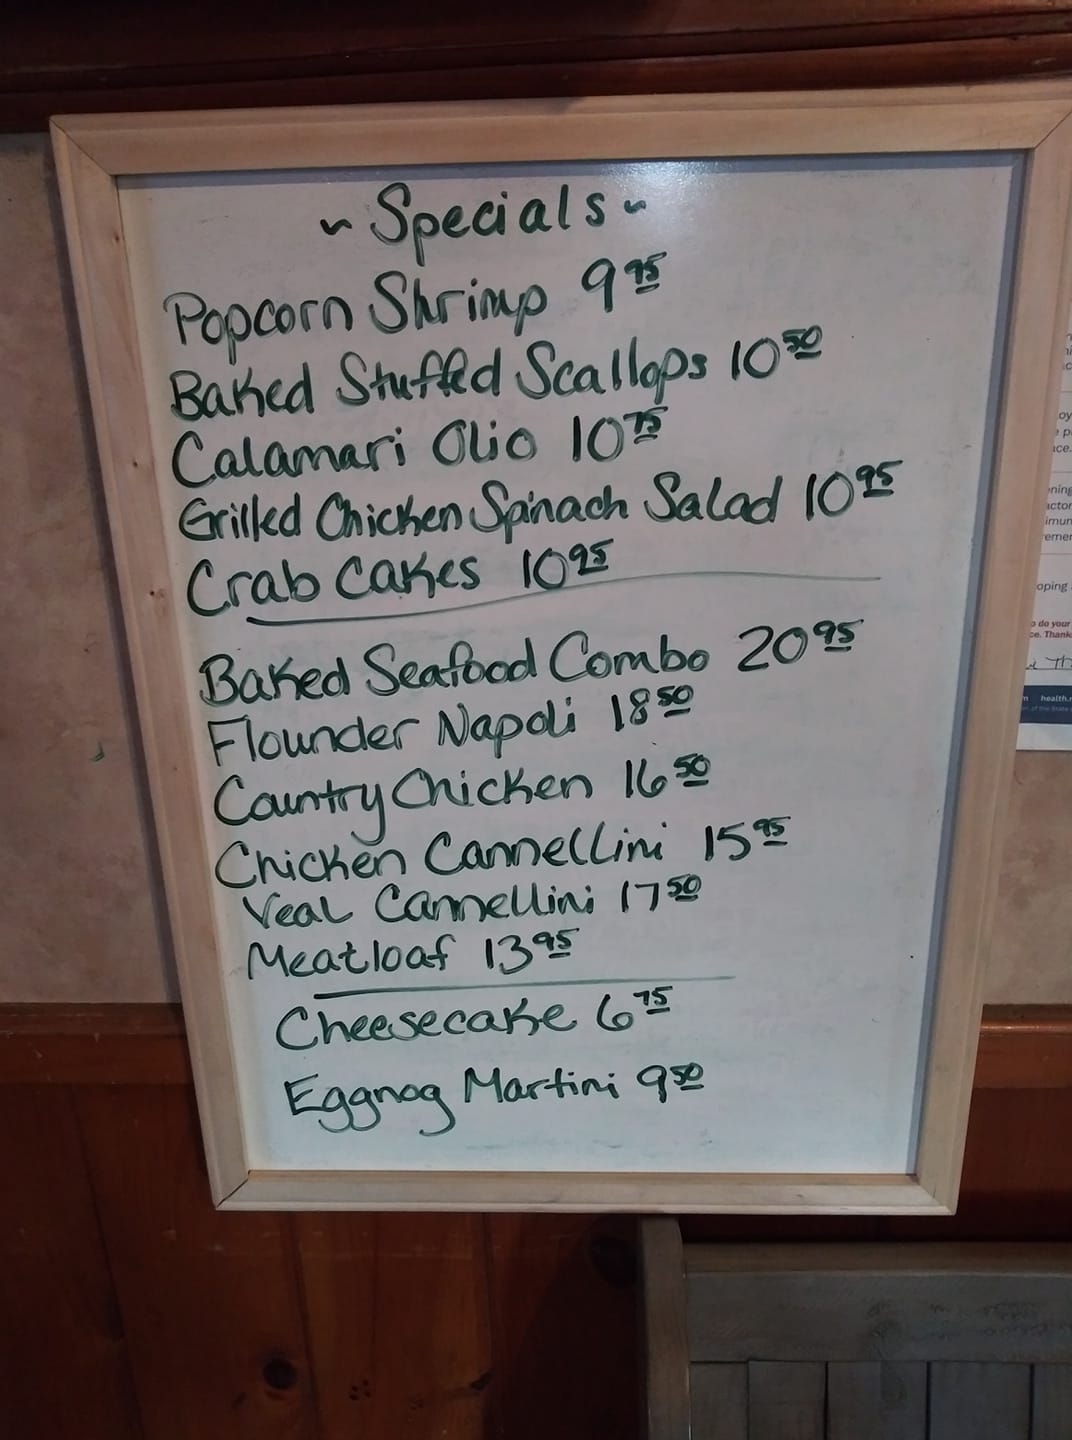 ~ Specials ~
Popcorn Shrimp 9 95
Baked Stuffed Scallops 10 50
Calamari Olio 10 75
Grilled Chicken Spinach Salad 10 95
Crab Cakes 10 95
Baked Seafood Combo 20 95
Flounder Napoli 18 50
Country Chicken 16 50
Chicken Cannellini 15 95
Veal Cannellini 17 50
Meatloaf 13 95
Cheesecake 6 75
Eggnog Martini 9 50
do your
Thank
health.
of the State